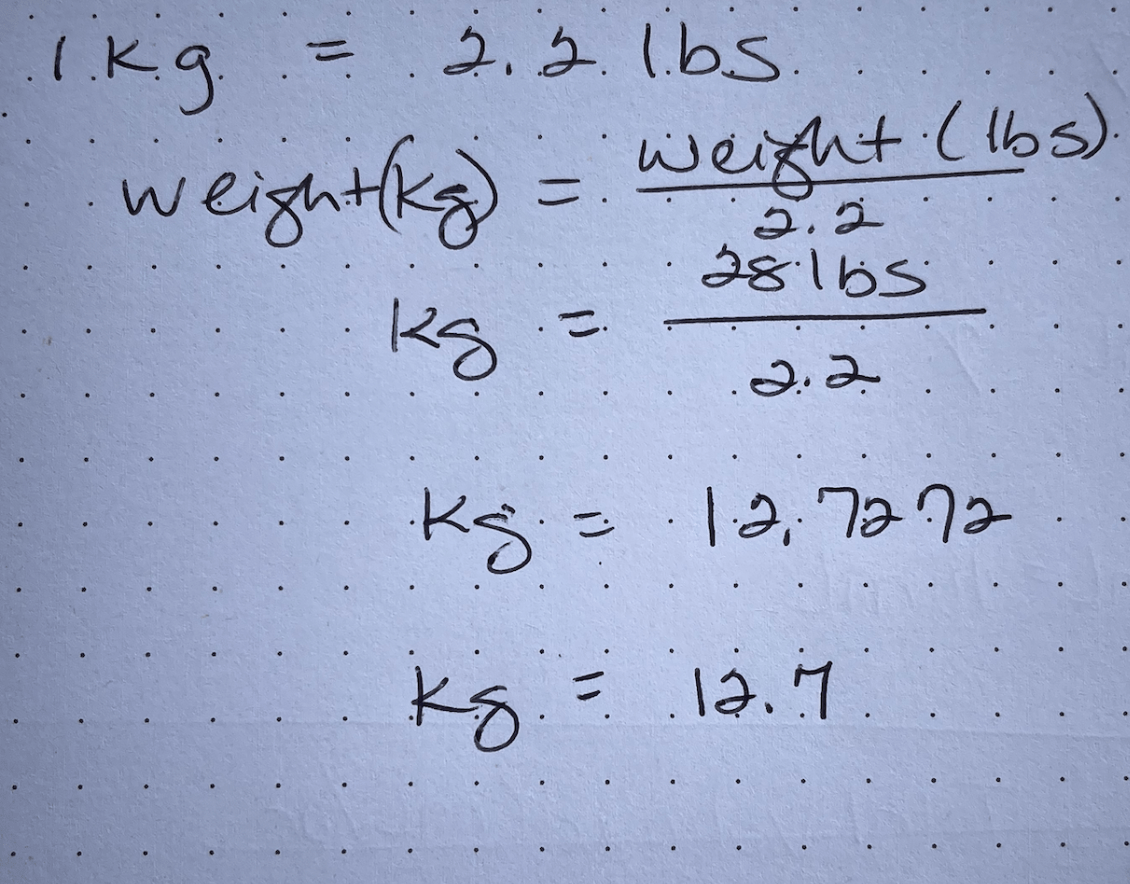 1 kg = 2.2 lbs
weight(kg) = weight (lbs)
2.2
kg = 28 lbs
2.2
kg = 12.7272
kg = 12.7